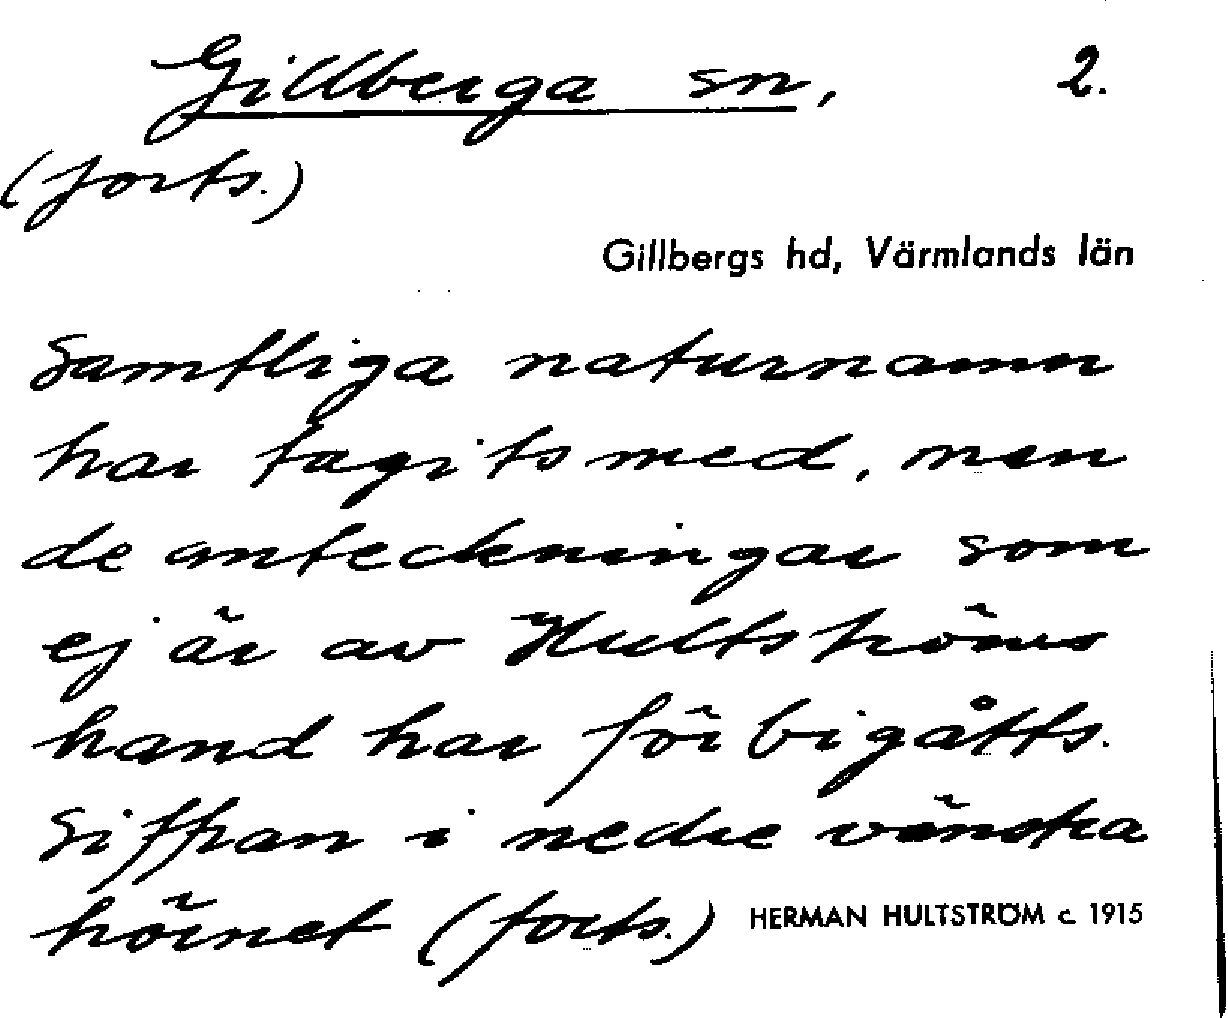 Gillberga sn, 2.
(forts.)
Gillbergs hd, Värmlands län
Samtliga naturnamn
har tagits med, men
de anteckningar som
ej är av Hultströms
hand har förbigåtts.
Siffran i nedre vänstra
hörnet (forts.) HERMAN HULTSTRÖM c. 1915